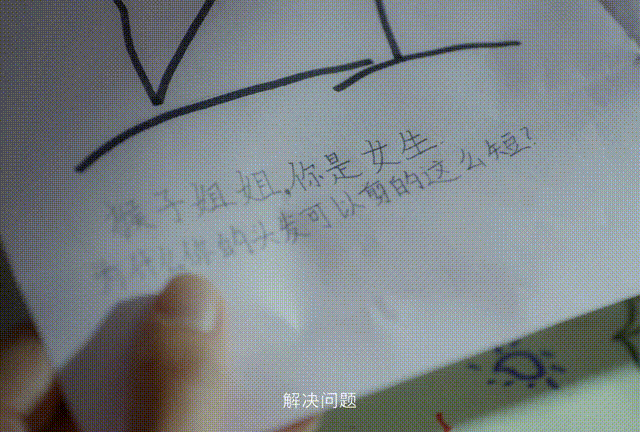 猴子姐姐,你是女生.
为什么你的头发可以剪的这么短?
解决问题